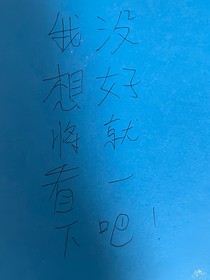 我没
想好
将就
看一
下吧!